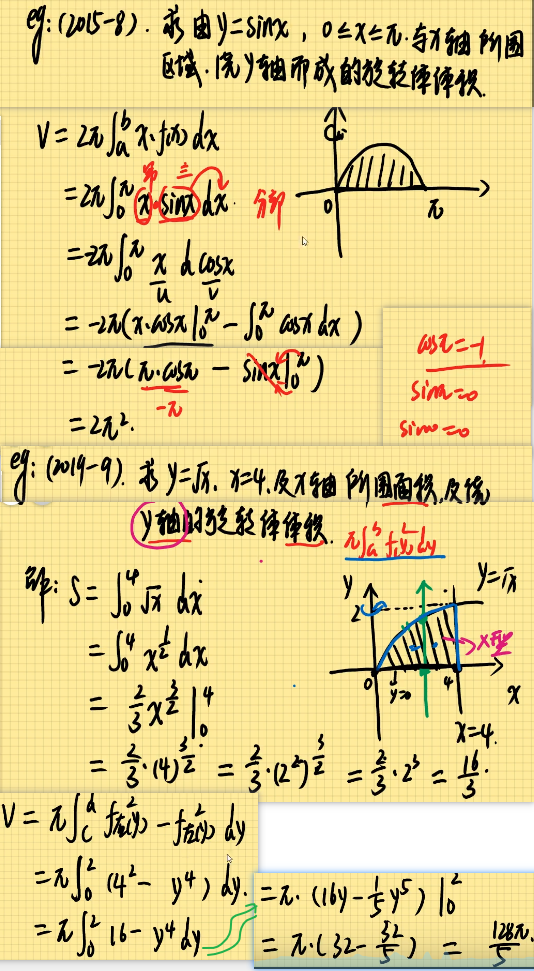 eg: (2015-8). 求由y=sinx, 0≤x≤π. 与x轴所围
区域. 绕y轴而成的旋转体体积.
V = 2π∫_a^b x·f(x) dx
幂 三
=2π∫_0^π x·sinx dx. 分部
0 π
=-2π∫_0^π x d cosx
u v
= -2π(x·cosx|_0^π - ∫_0^π cosx dx)
= -2π(π·cosπ - sinx|_0^π)
-π
= 2π².
cosπ=-1
sinπ=0
sin0=0
eg: (2014-9). 求y=√x, x=4, 及x轴所围面积, 及绕
y轴的旋转体体积.
π∫_a^b f²(y) dy
解: S = ∫_0^4 √x dx
= ∫_0^4 x^{1/2} dx
= 2/3 x^{3/2} |_0^4
= 2/3·(4)^{3/2} = 2/3·(2²)^{3/2} = 2/3·2³ = 16/3.
y y=√x
2
x型
0 y=0 4 x
x=4.
V = π∫_c^d f右²(y) - f左²(y) dy
=π∫_0^2 (4² - y⁴) dy.
=π∫_0^2 16 - y⁴ dy
=π·(16y - 1/5 y⁵) |_0^2
= π·(32 - 32/5) = 128π/5.